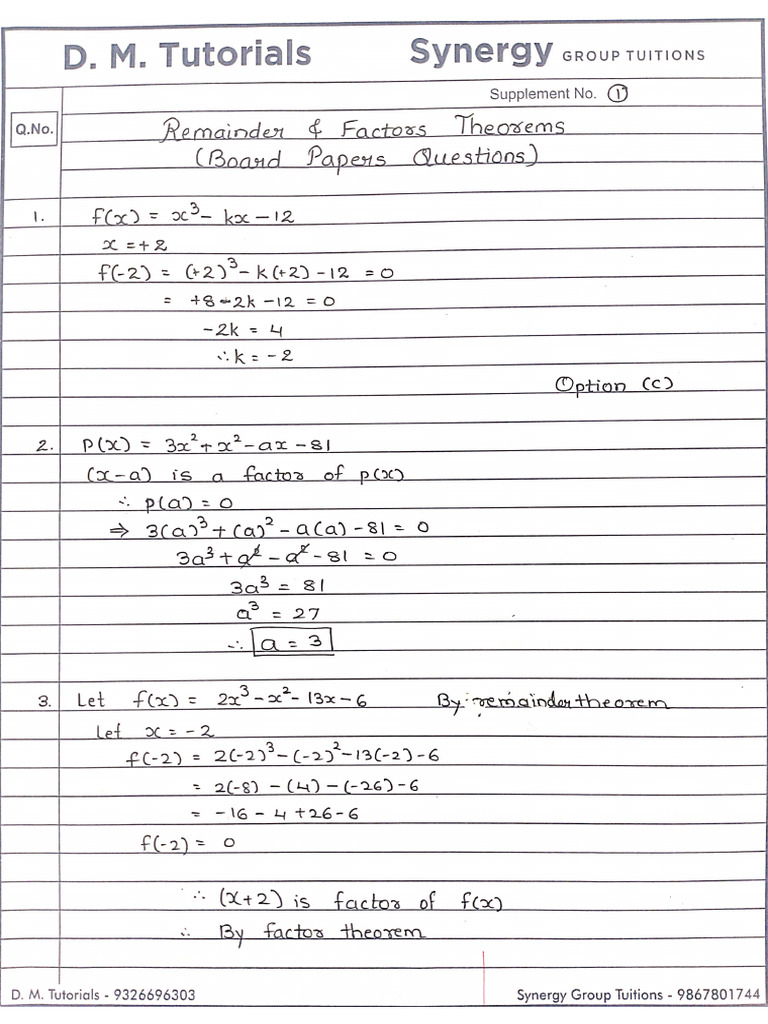 D. M. Tutorials Synergy GROUP TUITIONS
Supplement No. ①
Q.No. Remainder & Factors Theorems
(Board Papers Questions)
1. f(x) = x³ - kx - 12
x = +2
f(-2) = (+2)³ - k(+2) - 12 = 0
= +8 - 2k - 12 = 0
-2k = 4
∴ k = -2
Option (c)
2. P(x) = 3x² + x² - ax - 81
(x-a) is a factor of p(x)
∴ p(a) = 0
⇒ 3(a)³ + (a)² - a(a) - 81 = 0
3a³ + a² - a² - 81 = 0
3a³ = 81
a³ = 27
∴ a = 3
3. Let f(x) = 2x³ - x² - 13x - 6 By remainder theorem
Let x = -2
f(-2) = 2(-2)³ - (-2)² - 13(-2) - 6
= 2(-8) - (4) - (-26) - 6
= -16 - 4 + 26 - 6
f(-2) = 0
∴ (x+2) is factor of f(x)
∴ By factor theorem
D. M. Tutorials - 9326696303 Synergy Group Tuitions - 9867801744